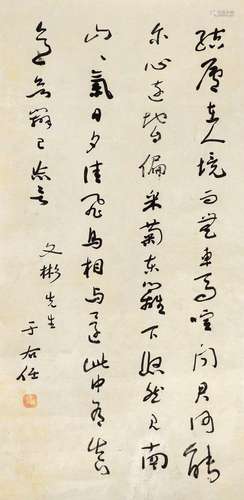 結廬在人境而無車馬喧問君何能
爾心遠地自偏采菊東籬下悠然見南
山〻氣日夕佳飛鳥相与還此中有真
意欲辯已忘言
文彬先生
于右任